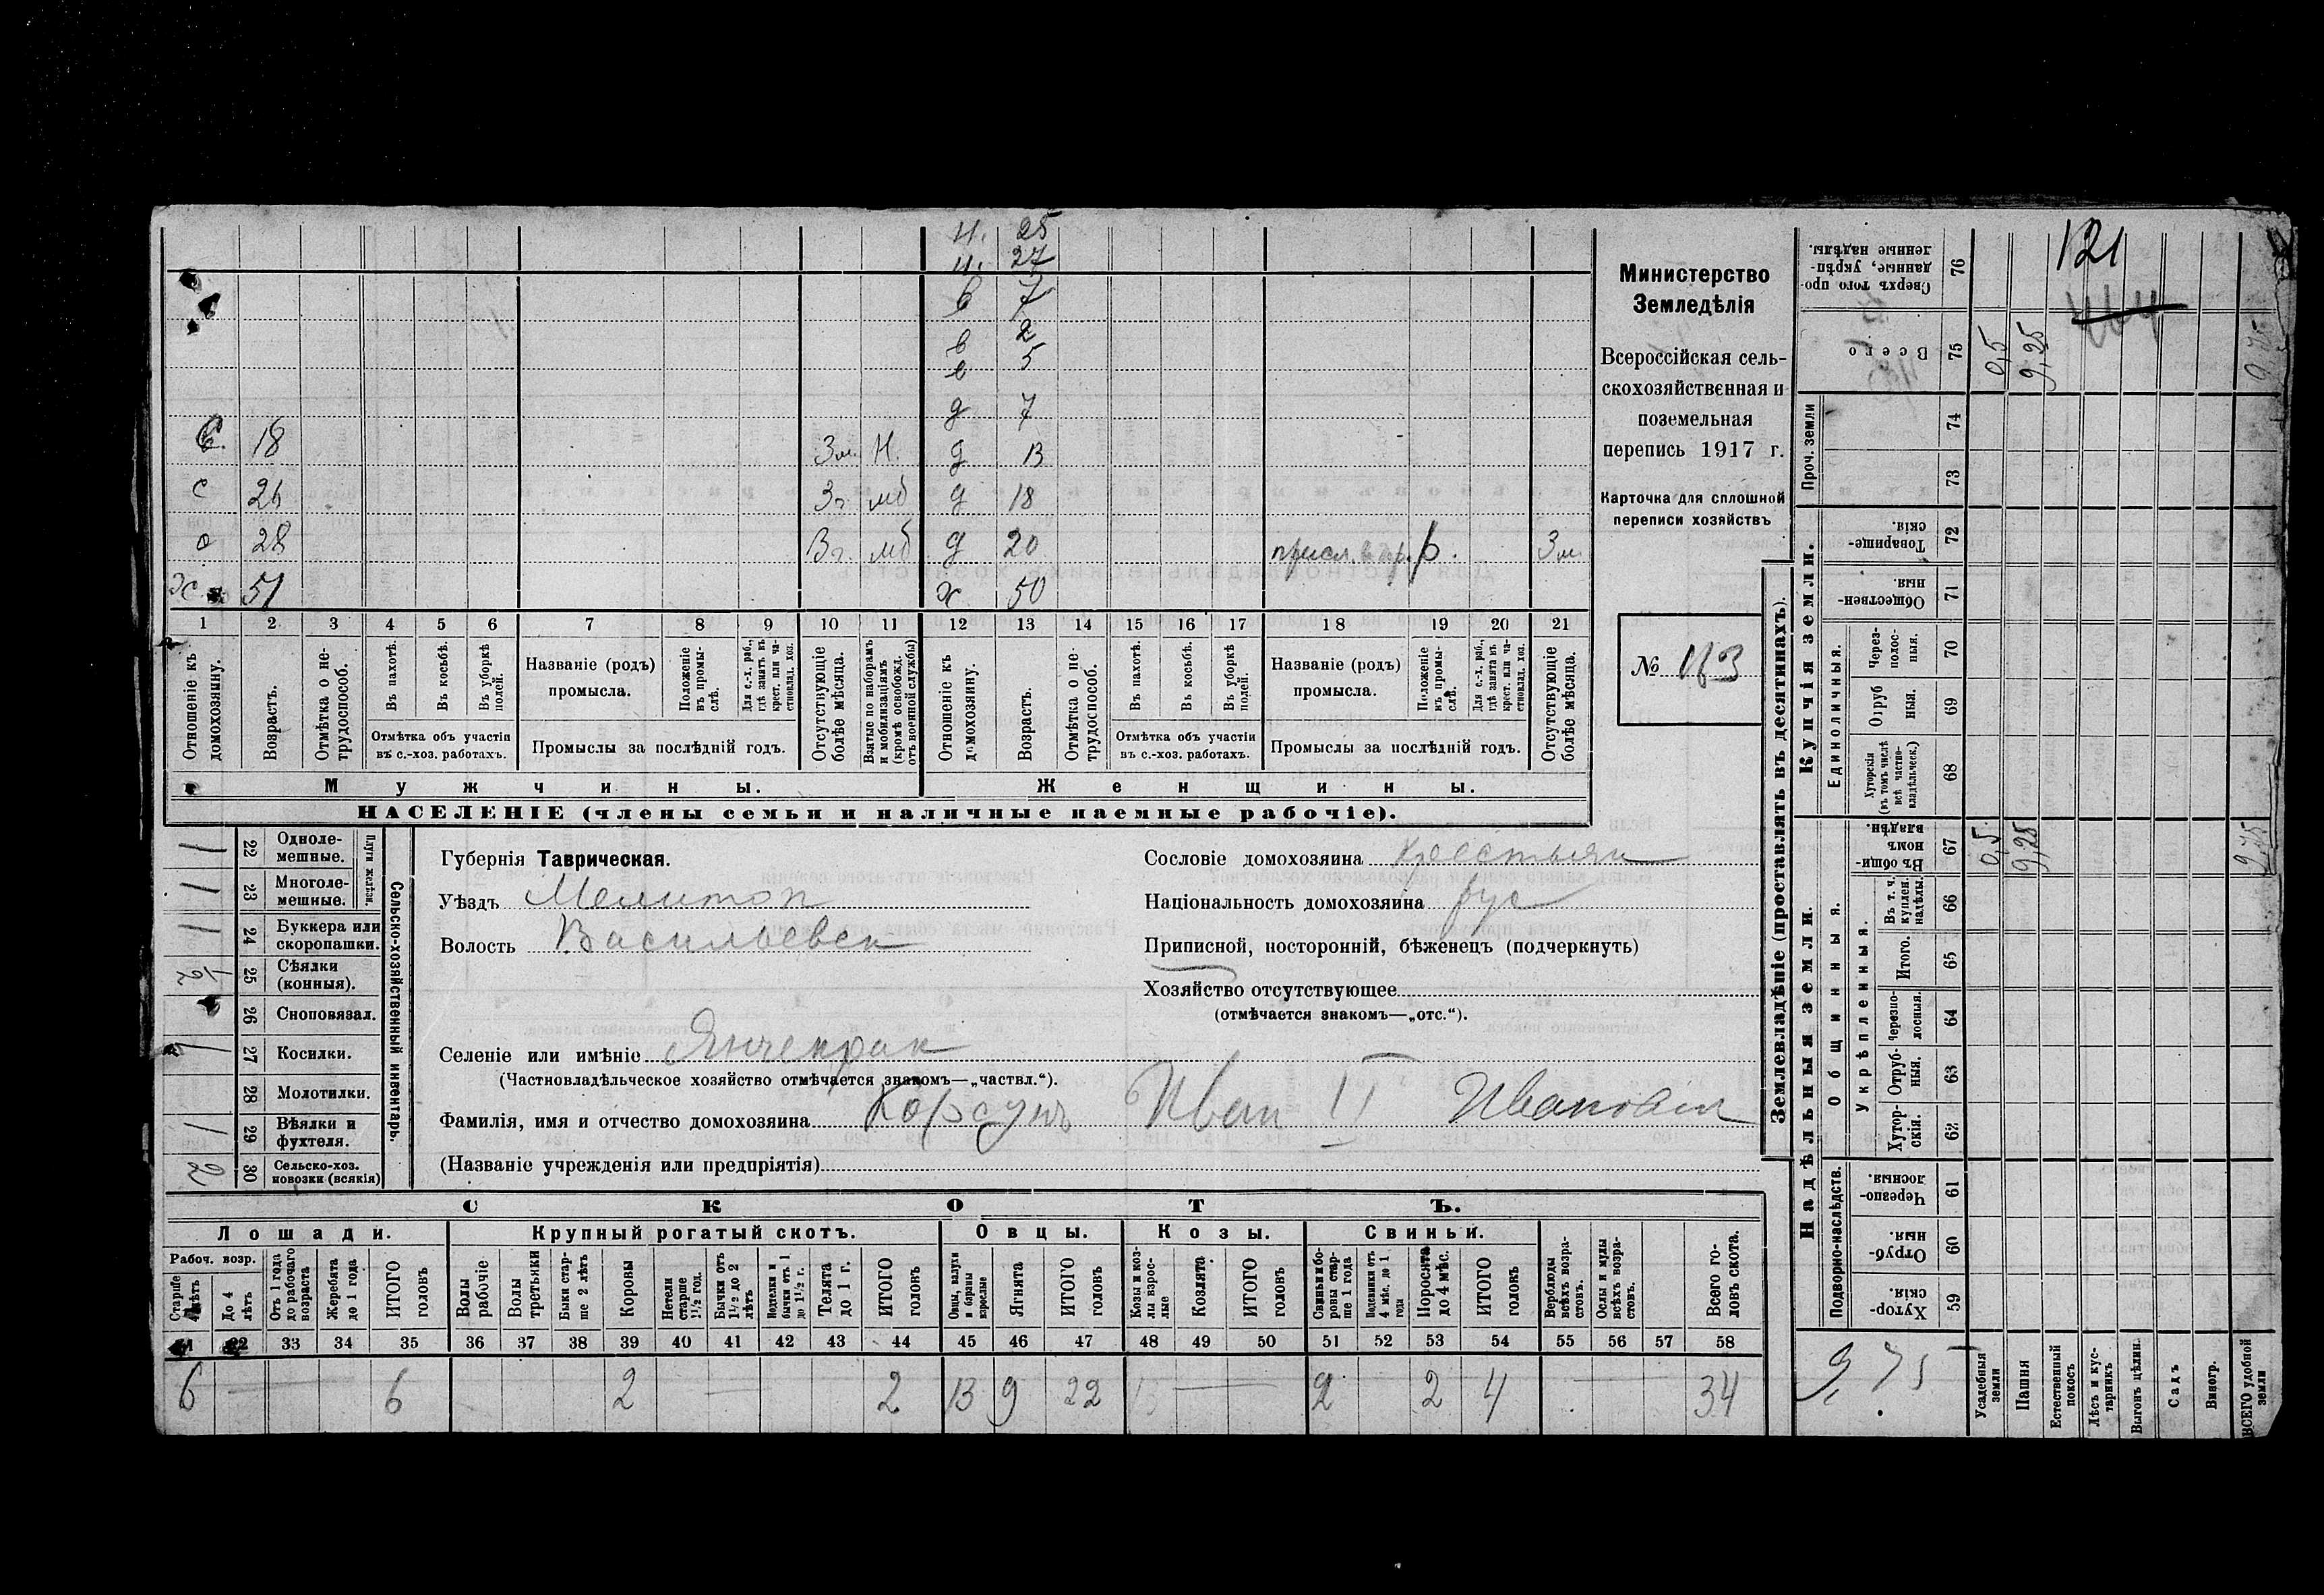 н. 25
н. 27
в 7
в 2
в 5
д 7
18 3 м. Н. д 13
с 26 3 г. мб д 18
с 28 3 г. мб д 20 присл. р. 3 м.
х. 51 х 50
1 2 3 4 5 6 7 8 9 10 11 12 13 14 15 16 17 18 19 20 21
Отношеніе къ домохозяину.
Возрастъ.
Отмѣтка о не-трудоспособ.
Въ пахотѣ.
Въ косьбѣ.
Въ уборкѣ полей.
Отмѣтка объ участіи въ с.-хоз. работахъ.
Названіе (родъ) промысла.
Положеніе въ промы-слѣ.
Для с.-х. раб., гдѣ занятъ въ крест. или ча-стновлад. хоз.
Промыслы за послѣдній годъ.
Отсутствующіе болѣе мѣсяца.
Взятые по наборамъ и мобилизаціямъ (кромѣ освобожд. отъ военной службы)
Отношеніе къ домохозяину.
Возрастъ.
Отмѣтка о не-трудоспособ.
Въ пахотѣ.
Въ косьбѣ.
Въ уборкѣ полей.
Отмѣтка объ участіи въ с.-хоз. работахъ.
Названіе (родъ) промысла.
Положеніе въ промы-слѣ.
Для с.-х. раб., гдѣ занята въ крест. или ча-стновлад. хоз.
Промыслы за послѣдній годъ.
Отсутствующіе болѣе мѣсяца.
Мужчины.
Женщины.
НАСЕЛЕНІЕ (члены семьи и наличные наемные рабочіе).
Министерство
Земледѣлія
Всероссійская сель-
скохозяйственная и
поземельная
перепись 1917 г.
Карточка для сплошной
переписи хозяйствъ
№ 163
Сельско-хозяйственный инвентарь.
Плуги желѣзн.
1 22 Одноле-мешные.
1 23 Многоле-мешные.
1 24 Буккера или скоропашки.
1/2 25 Сѣялки (конныя).
26 Сноповязал.
1 27 Косилки.
28 Молотилки.
1 29 Вѣялки и фухтеля.
2 30 Сельско-хоз. повозки (всякія)
Губернія Таврическая.
Уѣздъ Мелитоп
Волость Васильевск
Селеніе или имѣніе Янчекрак
(Частновладѣльческое хозяйство отмѣчается знакомъ—„частвл.“).
Фамилія, имя и отчество домохозяина Корсунъ Иван II Иванович
(Названіе учрежденія или предпріятія)
Сословіе домохозяина крестьян
Національность домохозяина рус
Приписной, посторонній, бѣженецъ (подчеркнуть)
Хозяйство отсутствующее
(отмѣчается знакомъ—„отс.“).
СКОТЪ.
Лошади. Крупный рогатый скотъ. Овцы. Козы. Свиньи.
Рабоч. возр.
Старше 4 лѣтъ
До 4 лѣтъ
Отъ 1 года до рабочаго возраста
Жеребята до 1 года
ИТОГО головъ
Волы рабочіе
Волы третьяки
Быки стар-ше 2 лѣтъ
Коровы
Нетели старше 1½ год.
Бычки отъ 1½ до 2 лѣтъ
Подтелки и бычки отъ 1 до 1½ г.
Телята до 1 г.
ИТОГО головъ
Овцы, валухи и бараны взрослые
Ягнята
ИТОГО головъ
Козы и коз-лы взрос-лые
Козлята
ИТОГО головъ
Свиньи и бо-ровы стар-ше 1 года
Подсвинки отъ 4 мѣс. до 1 года
Поросята до 4 мѣс.
ИТОГО головъ
Верблюды всѣхъ возра-стовъ.
Ослы и мулы всѣхъ возра-стовъ.
Всего го-ловъ скота.
31 32 33 34 35 36 37 38 39 40 41 42 43 44 45 46 47 48 49 50 51 52 53 54 55 56 57 58
6 6 2 2 13 9 22 2 2 4 34
Землевладѣніе (проставлять въ десятинахъ).
Надѣльныя земли.
Купчія земли.
Проч. земли
Подворно-наслѣдств.
Общинныя.
Укрѣпленныя.
Единоличныя.
121
Сверхъ того про-данные, укрѣп-ленные надѣлы. 76
Всего 75 0,5 9,25 9,75
74
73
Товарище-скія. 72
Обществен-ныя. 71
Через-полос-ныя. 70
Отруб-ныя. 69
Хуторскія (въ томъ числѣ всѣ частно-владѣльческ.) 68
Въ общин-номъ владѣн. 67 0,5 9,25 9,75
Въ т. ч. куплен. надѣлы. 66
Итого. 65
Черезпо-лосныя. 64
Отруб-ныя. 63
Хутор-скія. 62
Черезпо-лосныя. 61
Отруб-ныя. 60
Хутор-скія. 59
9,75
Усадебныя земли
Пашня
Естественный покосъ
Лѣсъ и кус-тарникъ
Выгонъ цѣлин.
Садъ
Виногр.
ВСЕГО удобной земли